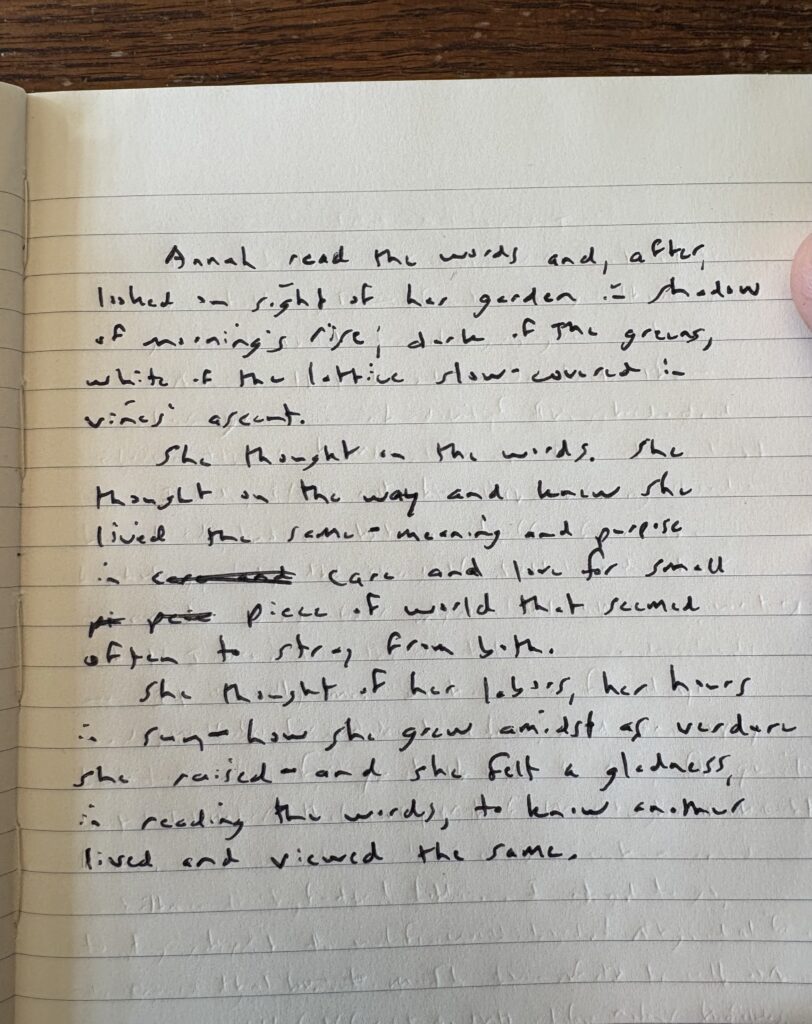 Annah read the words and, after,
looked on sight of her garden in shadow
of morning's rise; dark of the greens,
white of the lattice slow-covered in
vines' ascent.
She thought on the words. She
thought on the way and knew she
lived the same - meaning and purpose
in care and love for small
piece of world that seemed
often to stray from both.
She thought of her labors, her hours
in sun - how she grew amidst as verdure
she raised - and she felt a gladness,
in reading the words, to know another
lived and viewed the same.